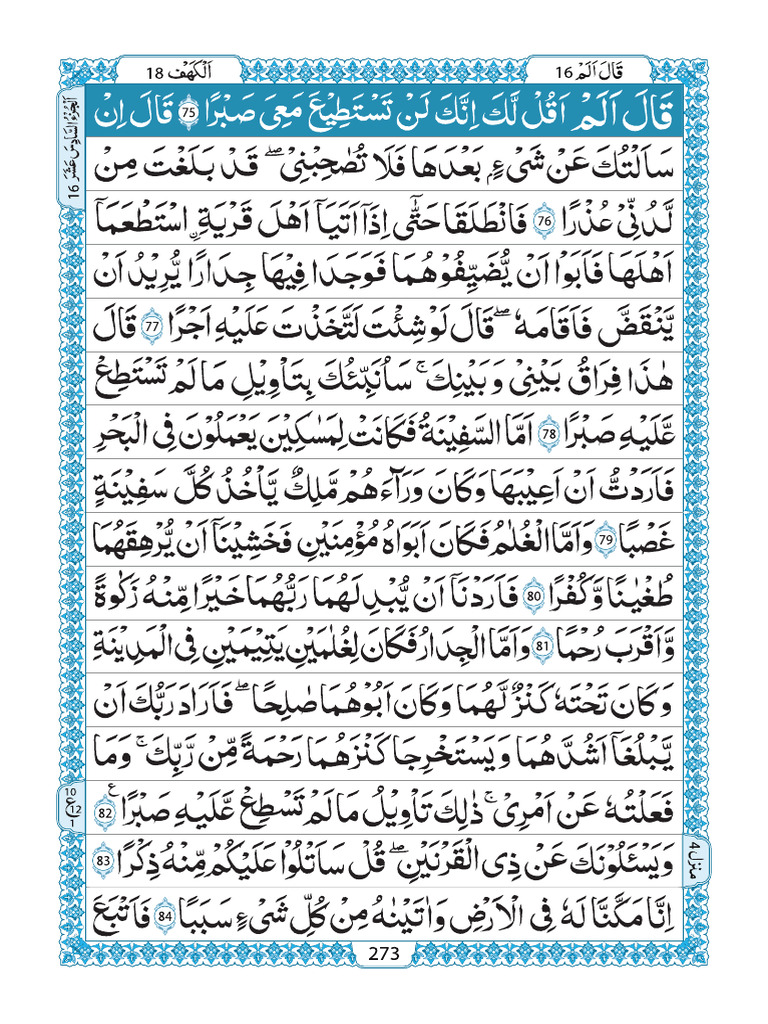 اَلْكَهْف 18
قَالَ اَلَمْ 16
اَلْجُزْءُ السَّادِسَ عَشَرَ 16
قَالَ اَلَمْ اَقُلْ لَّكَ اِنَّكَ لَنْ تَسْتَطِيْعَ مَعِىَ صَبْرًا 75 قَالَ اِنْ
سَاَلْتُكَ عَنْ شَىْءٍۭ بَعْدَهَا فَلَا تُصٰحِبْنِىْ ۖ قَدْ بَلَغْتَ مِنْ
لَّدُنِّىْ عُذْرًا 76 فَانْطَلَقَا حَتّٰۤى اِذَاۤ اَتَيَاۤ اَهْلَ قَرْيَةِ ۨاسْتَطْعَمَاۤ
اَهْلَهَا فَاَبَوْا اَنْ يُّضَيِّفُوْهُمَا فَوَجَدَا فِيْهَا جِدَارًا يُّرِيْدُ اَنْ
يَّنْقَضَّ فَاَقَامَهٗ ۖ قَالَ لَوْ شِئْتَ لَتَّخَذْتَ عَلَيْهِ اَجْرًا 77 قَالَ
هٰذَا فِرَاقُ بَيْنِىْ وَبَيْنِكَ ۚ سَاُنَبِّئُكَ بِتَاْوِيْلِ مَا لَمْ تَسْتَطِعْ
عَّلَيْهِ صَبْرًا 78 اَمَّا السَّفِيْنَةُ فَكَانَتْ لِمَسٰكِيْنَ يَعْمَلُوْنَ فِى الْبَحْرِ
فَاَرَدْتُّ اَنْ اَعِيْبَهَا وَكَانَ وَرَآءَهُمْ مَّلِكٌ يَّاْخُذُ كُلَّ سَفِيْنَةٍ
غَصْبًا 79 وَاَمَّا الْغُلٰمُ فَكَانَ اَبَوَاهُ مُؤْمِنَيْنِ فَخَشِيْنَاۤ اَنْ يُّرْهِقَهُمَا
طُغْيٰنًا وَّكُفْرًا 80 فَاَرَدْنَاۤ اَنْ يُّبْدِلَهُمَا رَبُّهُمَا خَيْرًا مِّنْهُ زَكٰوةً
وَّاَقْرَبَ رُحْمًا 81 وَاَمَّا الْجِدَارُ فَكَانَ لِغُلٰمَيْنِ يَتِيْمَيْنِ فِى الْمَدِيْنَةِ
وَكَانَ تَحْتَهٗ كَنْزٌ لَّهُمَا وَكَانَ اَبُوْهُمَا صٰلِحًا ۖ فَاَرَادَ رَبُّكَ اَنْ
يَّبْلُغَاۤ اَشُدَّهُمَا وَيَسْتَخْرِجَا كَنْزَهُمَا رَحْمَةً مِّنْ رَّبِّكَ ۚ وَمَا
فَعَلْتُهٗ عَنْ اَمْرِىْ ۚ ذٰلِكَ تَاْوِيْلُ مَا لَمْ تَسْطِعْ عَّلَيْهِ صَبْرًا ع 82
10
ع 12
1
وَيَسْـَٔلُوْنَكَ عَنْ ذِى الْقَرْنَيْنِ ۖ قُلْ سَاَتْلُوْا عَلَيْكُمْ مِّنْهُ ذِكْرًا 83
منزل 4
اِنَّا مَكَّنَّا لَهٗ فِى الْاَرْضِ وَاٰتَيْنٰهُ مِنْ كُلِّ شَىْءٍ سَبَبًا 84 فَاَتْبَعَ
273